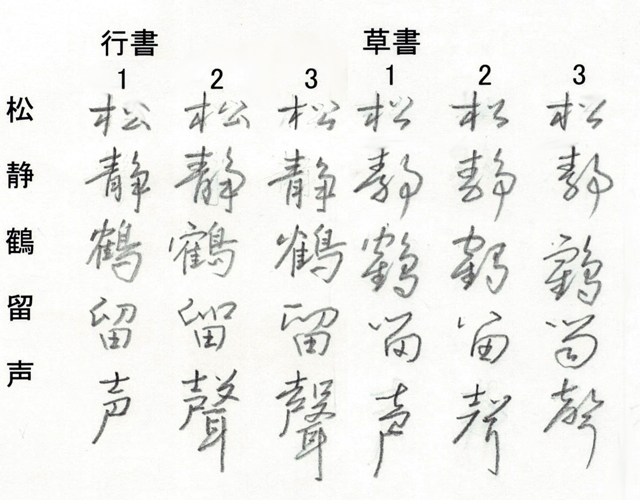 行書 草書
1 2 3 1 2 3
松 松 松 松 松 松 松
静 静 静 静 静 静 静
鶴 鶴 鶴 鶴 鶴 鶴 鶴
留 留 留 留 留 留 留
声 声 聲 聲 声 聲 聲